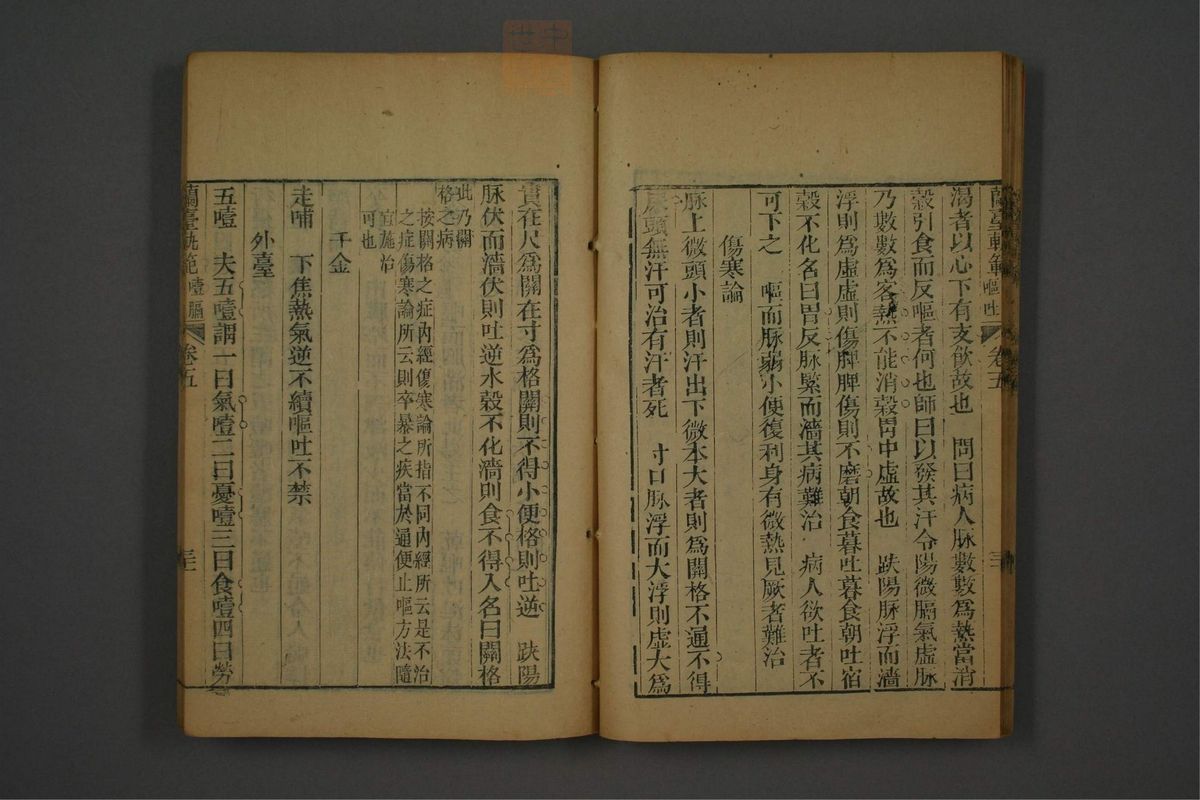 蘭臺軌範 嘔吐 卷五
渴者以心下有支飮故也 問曰病人脉數數爲熱當消
穀引食而反嘔者何也師曰以發其汗令陽微膈氣虛脉
乃數數爲客熱不能消穀胃中虛故也 趺陽脉浮而濇
浮則爲虛虛則傷脾脾傷則不磨朝食暮吐暮食朝吐宿
穀不化名曰胃反脉緊而濇其病難治 病人欲吐者不
可下之 嘔而脉弱小便復利身有微熱見厥者難治
傷寒論
脉上微頭小者則汗出下微本大者則爲關格不通不得
尿頭無汗可治有汗者死 寸口脉浮而大浮則虛大爲
實在尺爲關在寸爲格關則不得小便格則吐逆 趺陽
脉伏而濇伏則吐逆水穀不化濇則食不得入名曰關格
此乃關
格之病
按關格之症內經傷寒論所指不同內經所云是不治
之症傷寒論所云則卒暴之疾當於通便止嘔方法隨
宜施治
可也
千金
走哺 下焦熱氣逆不續嘔吐不禁
外臺
五噎 夫五噎謂一曰氣噎二曰憂噎三曰食噎四曰勞
蘭臺軌範 噎膈 卷五